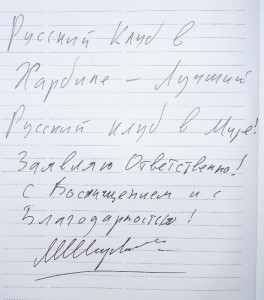 Русский Клуб в
Харбине – Лучший
Русский клуб в Мире!
Заявляю Ответственно!
с Восхищением и с
Благодарностью!